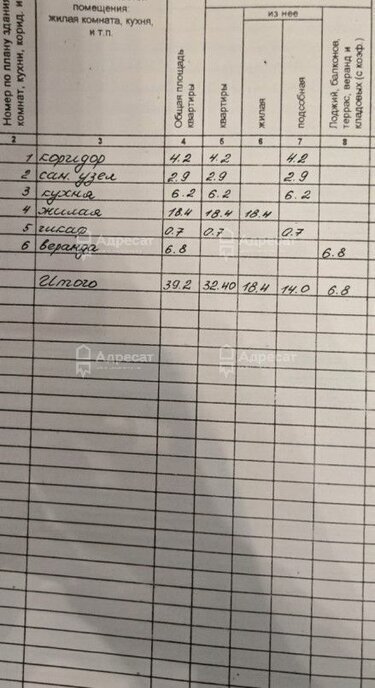 Номер по плану здания
комнат, кухни, корид. и
помещения:
жилая комната, кухня,
и т.п.
Общая площадь
квартиры
из нее
квартиры
жилая
подсобная
Лоджий, балконов,
террас, веранд и
кладовых (с коэф.)
2 3 4 5 6 7 8
1 коридор 4.2 4.2 4.2
2 сан. узел 2.9 2.9 2.9
3 кухня 6.2 6.2 6.2
4 жилая 18.4 18.4 18.4
5 шкаф 0.7 0.7 0.7
6 веранда 6.8 6.8
Итого 39.2 32.40 18.4 14.0 6.8
Адресат
Адресат
Адресат
Адресат